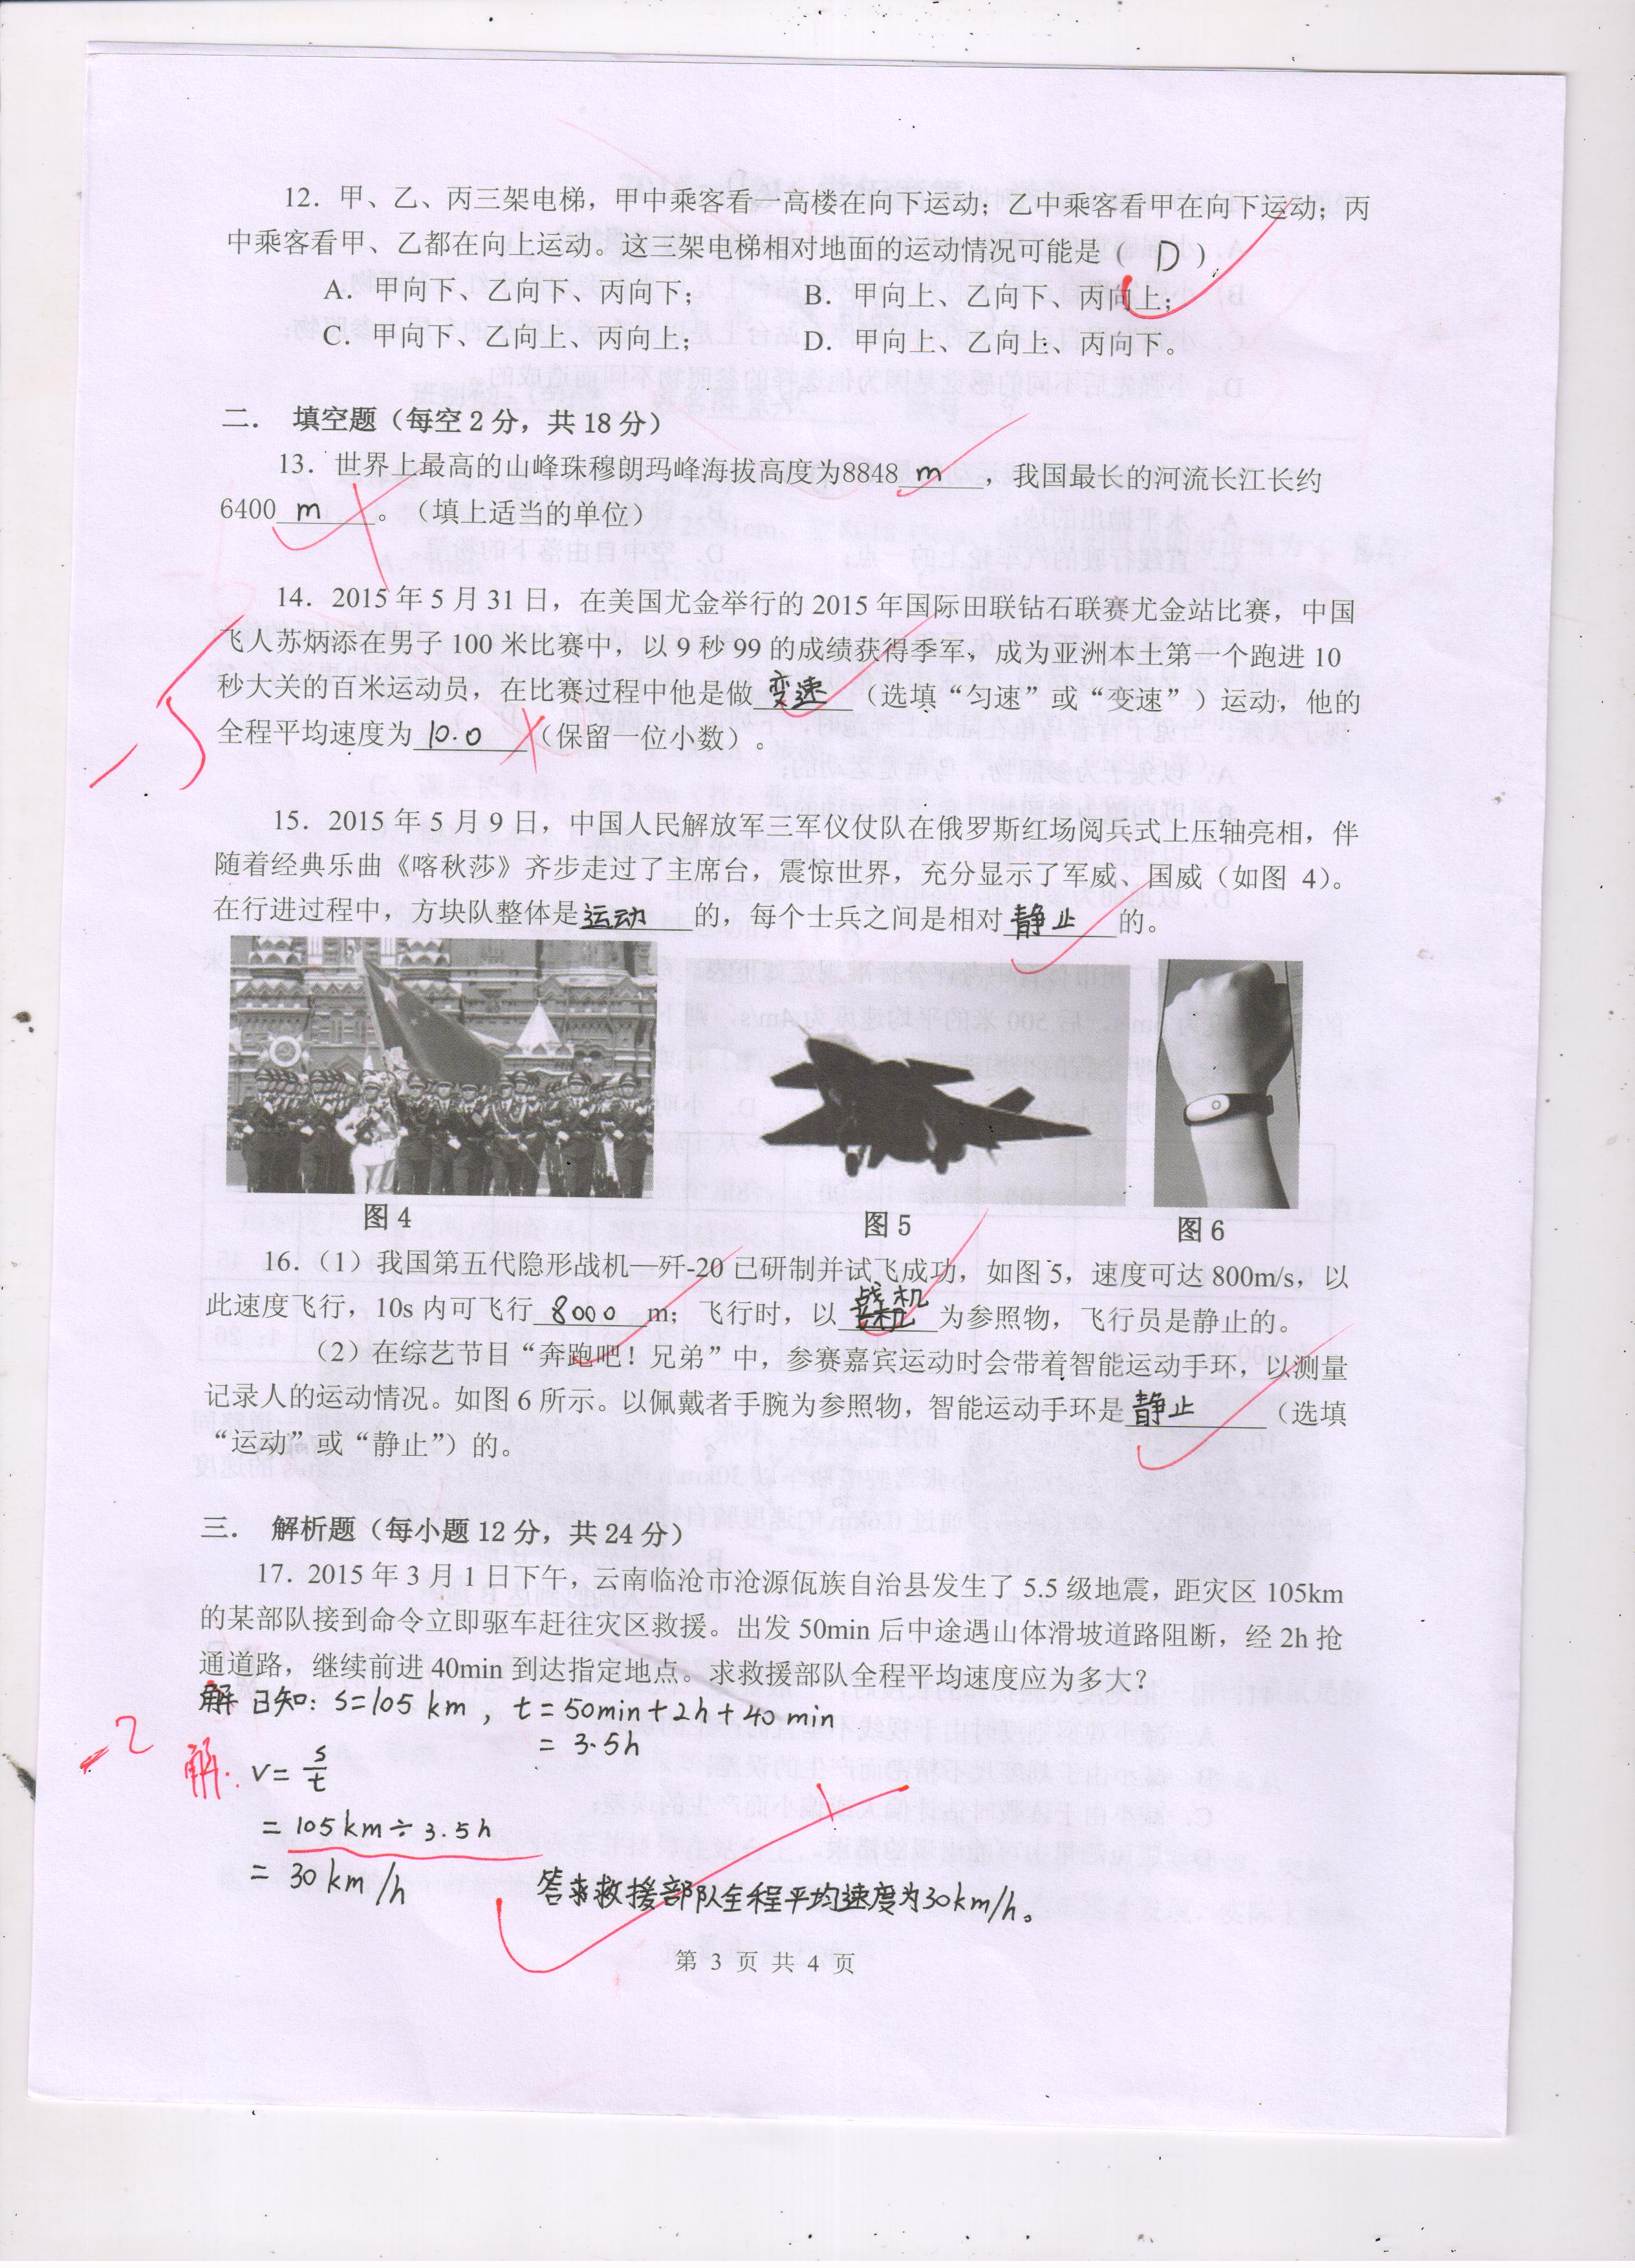 12．甲、乙、丙三架电梯，甲中乘客看一高楼在向下运动；乙中乘客看甲在向下运动；丙
中乘客看甲、乙都在向上运动。这三架电梯相对地面的运动情况可能是（ D ）
A．甲向下、乙向下、丙向下； B．甲向上、乙向下、丙向上；
C．甲向下、乙向上、丙向上； D．甲向上、乙向上、丙向下。
二． 填空题（每空2分，共18分）
13．世界上最高的山峰珠穆朗玛峰海拔高度为8848 m ，我国最长的河流长江长约
6400 m 。（填上适当的单位）
14．2015年5月31日，在美国尤金举行的2015年国际田联钻石联赛尤金站比赛，中国
飞人苏炳添在男子100米比赛中，以9秒99的成绩获得季军，成为亚洲本土第一个跑进10
秒大关的百米运动员，在比赛过程中他是做 变速 （选填“匀速”或“变速”）运动，他的
全程平均速度为 10.0 （保留一位小数）。
-5
15．2015年5月9日，中国人民解放军三军仪仗队在俄罗斯红场阅兵式上压轴亮相，伴
随着经典乐曲《喀秋莎》齐步走过了主席台，震惊世界，充分显示了军威、国威（如图 4）。
在行进过程中，方块队整体是 运动 的，每个士兵之间是相对 静止 的。
图4 图5 图6
16．（1）我国第五代隐形战机—歼-20已研制并试飞成功，如图5，速度可达800m/s，以
此速度飞行，10s内可飞行 8000 m；飞行时，以 战机 为参照物，飞行员是静止的。
（2）在综艺节目“奔跑吧！兄弟”中，参赛嘉宾运动时会带着智能运动手环，以测量
记录人的运动情况。如图6所示。以佩戴者手腕为参照物，智能运动手环是 静止 （选填
“运动”或“静止”）的。
三． 解析题（每小题12分，共24分）
17．2015年3月1日下午，云南临沧市沧源佤族自治县发生了5.5级地震，距灾区105km
的某部队接到命令立即驱车赶往灾区救援。出发50min后中途遇山体滑坡道路阻断，经2h抢
通道路，继续前进40min到达指定地点。求救援部队全程平均速度应为多大？
解 已知：s=105 km，t=50min+2h+40min
= 3.5h
-2
解: v=s/t
=105km÷3.5h
=30km/h 答求救援部队全程平均速度为30km/h。
第 3 页 共 4 页